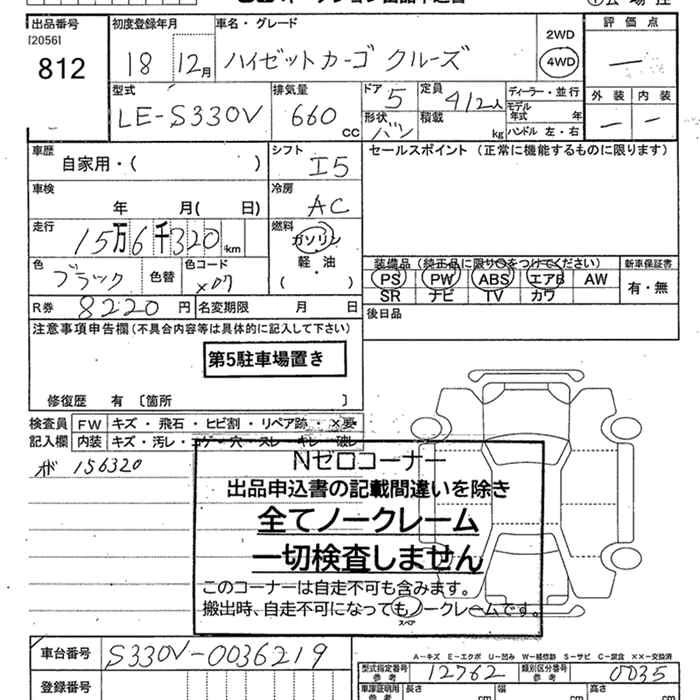 出品番号 初度登録年月 車名・グレード 評価点
[2056]
812 18 12月 ハイゼットカーゴ クルーズ 2WD 4WD —
型式 LE-S330V 排気量 660 cc ドア 5 定員 4/2人 ディーラー・並行 外装 内装
形状 バン 積載 kg モデル年式 年 ハンドル 左・右 — —
車歴 自家用・( ) シフト I5 セールスポイント (正常に機能するものに限ります)
車検 年 月( 日) 冷房 AC
走行 15万6千320km 燃料 ガソリン 軽・油 ( )
色 ブラック 色替 色コード X07
装備品 (純正品に限り○をつけてください) 新車保証書
PS PW ABS エアB AW 有・無
SR ナビ TV カワ
R券 8220円 名変期限 月 日 後日品
注意事項申告欄(不具合内容等は具体的に記入して下さい)
第5駐車場置き
修復歴 有 〔箇所 〕
検査員 FW キズ・飛石・ヒビ割・リペア跡・×要
記入欄 内装 キズ・汚レ・コゲ・穴・スレ・キレ・破レ
156320
Nゼロコーナー
出品申込書の記載間違いを除き
全てノークレーム
一切検査しません
このコーナーは自走不可も含みます。
搬出時、自走不可になってもノークレームです。
スペア
A-キズ E-エクボ U-凹み W-補修跡 S-サビ C-腐食 ××-交換済
車台番号 S330V-0036219
型式指定番号 参考 12762 類別区分番号 参考 0035
登録番号 車庫証明用 参考 長さ cm 幅 cm 高さ cm